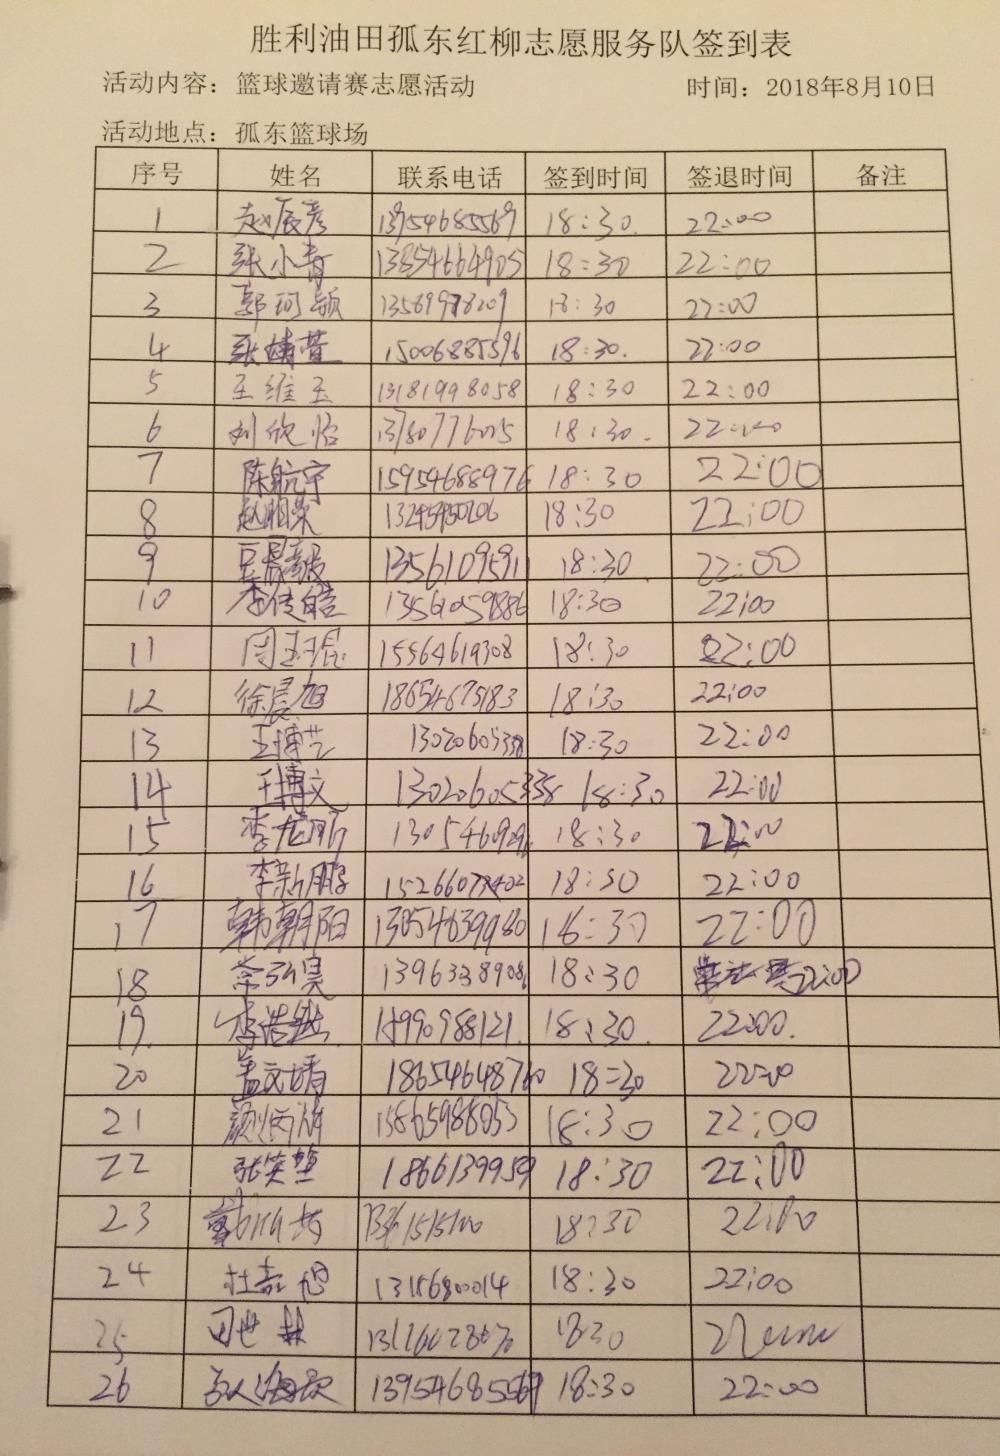 胜利油田孤东红柳志愿服务队签到表
活动内容：篮球邀请赛志愿活动 时间：2018年8月10日
活动地点：孤东篮球场
序号 姓名 联系电话 签到时间 签退时间 备注
1 赵辰彦 13954685569 18:30. 22:00
2 张小青 13854664905 18:30 22:00
3 郭珂颖 18:30 22:00
4 张婧萱 15006885596 18:30. 22:00
5 王维玉 13181998058 18:30 22:00
6 刘欣怡 18:30. 22:00
7 陈航宇 15954688976 18:30 22:00
8 18:30 22:00
9 13561095911 18:30 22:00
10 李传皓 13561059886 18:30 22:00
11 周玉琨 15564619308 18:30 22:00
12 徐晨旭 18654675183 18:30 22:00
13 王博艺 13020605338 18:30 22:00
14 王博文 13020605338 18:30 22:00
15 18:30 22:00
16 李新鹏 18:30 22:00
17 韩朝阳 18:30 22:00
18 18:30 22:00
19. 李浩然 18:30. 22:00.
20 孟文婧 18654648760 18:30 22:00
21 18:30 22:00
22 张笑楚 1866139959 18:30 22:00
23 18:30 22:00
24 杜嘉旭 18:30 22:00
25 田世林 18:30
26 13954685569 18:30 22:00